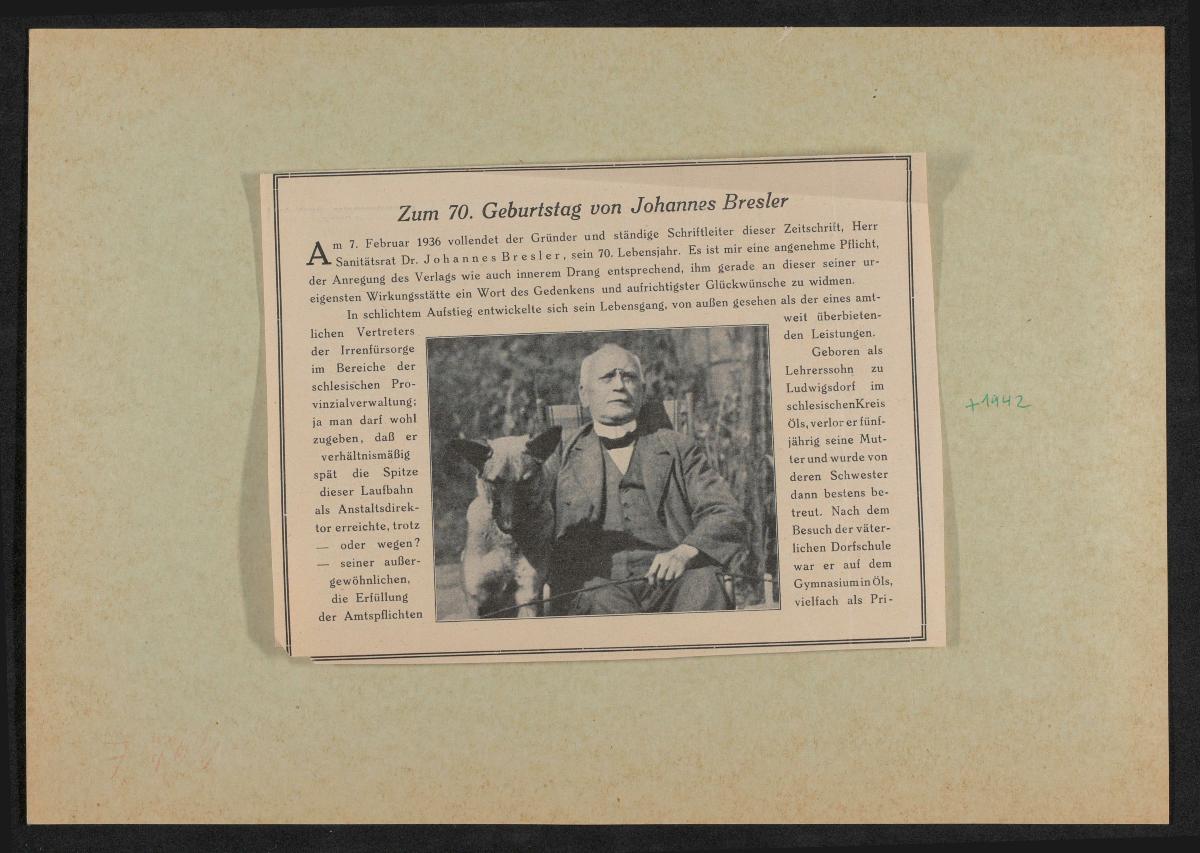 Zum 70. Geburtstag von Johannes Bresler
Am 7. Februar 1936 vollendet der Gründer und ständige Schriftleiter dieser Zeitschrift, Herr
Sanitätsrat Dr. Johannes Bresler, sein 70. Lebensjahr. Es ist mir eine angenehme Pflicht,
der Anregung des Verlags wie auch innerem Drang entsprechend, ihm gerade an dieser seiner ur-
eigensten Wirkungsstätte ein Wort des Gedenkens und aufrichtigster Glückwünsche zu widmen.
In schlichtem Aufstieg entwickelte sich sein Lebensgang, von außen gesehen als der eines amt-
lichen Vertreters
der Irrenfürsorge
im Bereiche der
schlesischen Pro-
vinzialverwaltung;
ja man darf wohl
zugeben, daß er
verhältnismäßig
spät die Spitze
dieser Laufbahn
als Anstaltsdirek-
tor erreichte, trotz
— oder wegen?
— seiner außer-
gewöhnlichen,
die Erfüllung
der Amtspflichten
weit überbieten-
den Leistungen.
Geboren als
Lehrerssohn zu
Ludwigsdorf im
schlesischen Kreis
Öls, verlor er fünf-
jährig seine Mut-
ter und wurde von
deren Schwester
dann bestens be-
treut. Nach dem
Besuch der väter-
lichen Dorfschule
war er auf dem
Gymnasium in Öls,
vielfach als Pri-
+1942